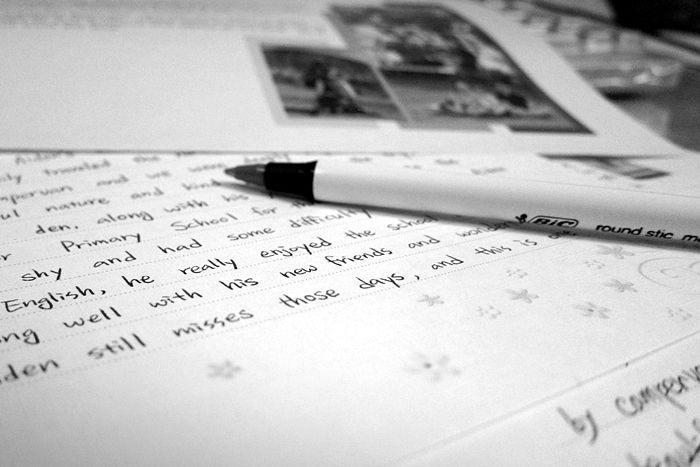 traveled the
mpervan and we were deeply
ul nature and kind
den, along with his
r Primary School for
shy and had some difficulty
English, he really enjoyed the school
ng well with his new friends and wonder
den still misses those days, and this is one
BIC round stic m
by camperva